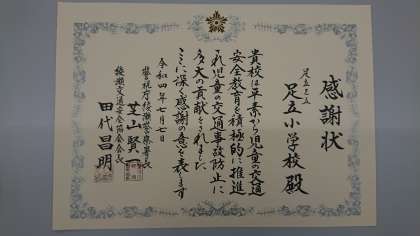 感謝状
足立区立
足立小学校 殿
貴校は平素から児童の交通
安全教育を積極的に推進
され児童の交通事故防止に
多大の貢献をされました
ここに深く感謝の意を表します
令和四年七月七日
警視庁綾瀬警察署長
芝山賢一
綾瀬交通安全協会会長
田代昌明